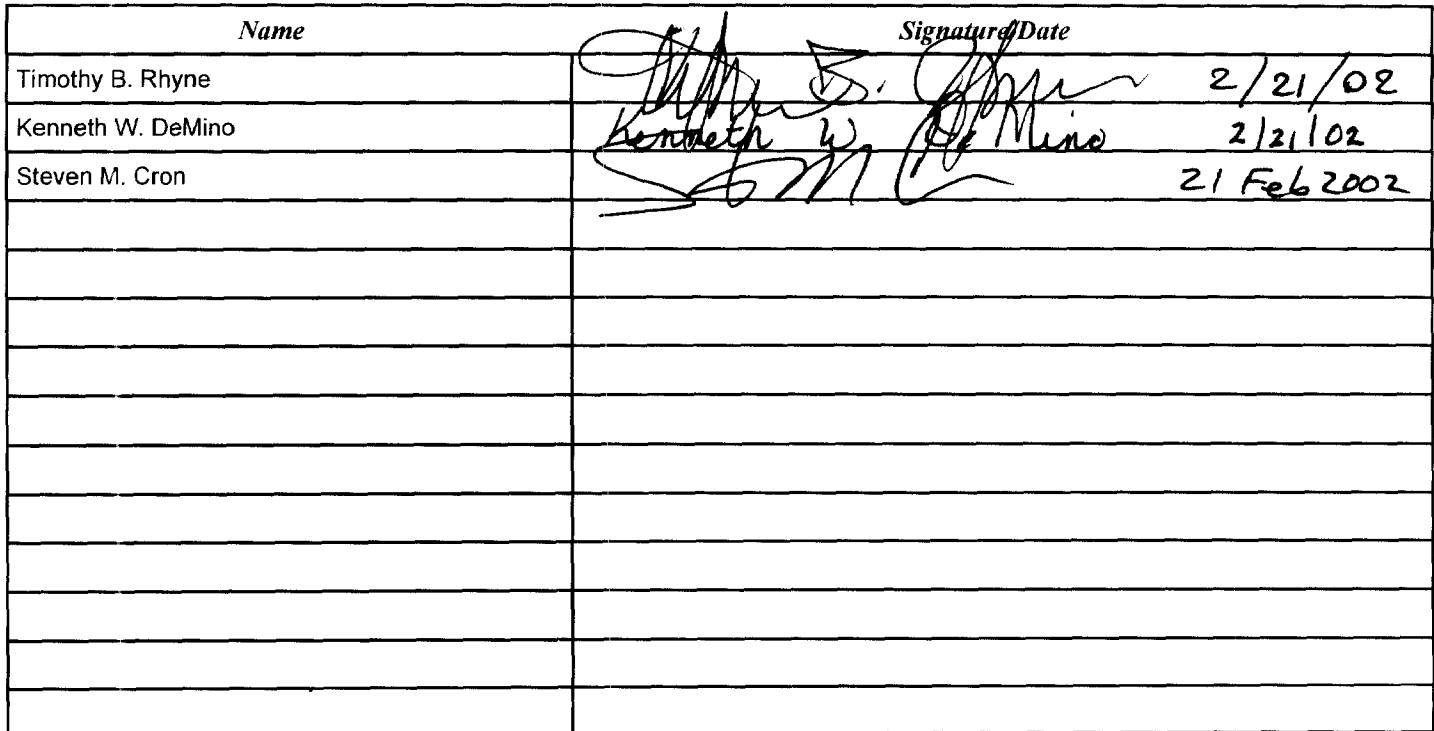 Name Signature/Date
Timothy B. Rhyne B. 2/21/02
Kenneth W. DeMino Kenneth W. DeMino 2/21/02
Steven M. Cron 21 Feb 2002